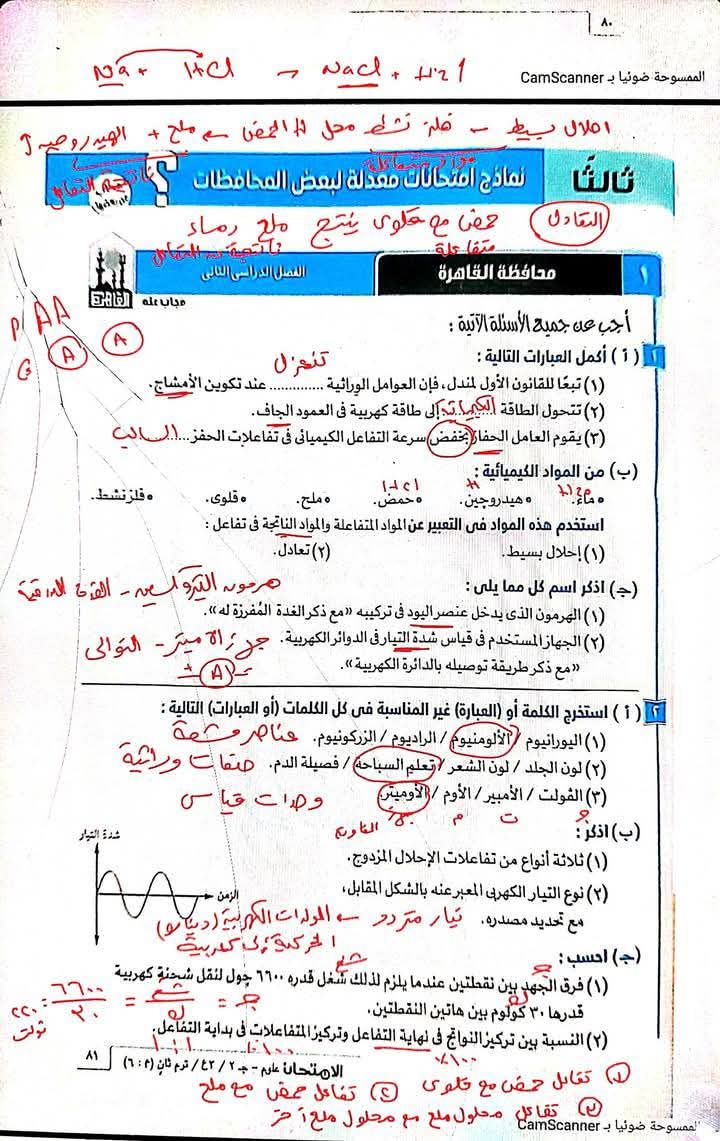 ٨٠
Na + HCl → NaCl + H2↑
الممسوحة ضوئيا بـ CamScanner
احلال بسيط - فلز نشط محل H الحمض → ملح + الهيدروجين
مواد متفاعلة
ناتجة من التفاعل
ثالثًا
نماذج امتحانات معدلة لبعض المحافظات
التعادل
حمض مع قلوى ينتج ملح وماء
متفاعلة
ناتجة من التفاعل
١ محافظة القاهرة
الفصل الدراسى الثانى
القاهرة
مجاب عنه
AA
A A
أجب عن جميع الأسئلة الآتية :
١ ( أ ) أكمل العبارات التالية :
تنعزل
(١) تبعًا للقانون الأول لمندل، فإن العوامل الوراثية ............ عند تكوين الأمشاج.
(٢) تتحول الطاقة الكيميائية إلى طاقة كهربية فى العمود الجاف.
(٣) يقوم العامل الحفاز بخفض سرعة التفاعل الكيميائى فى تفاعلات الحفز ...... السالب
(ب) من المواد الكيميائية :
• ماء. • هيدروجين. • حمض. • ملح. • قلوى. • فلز نشط.
استخدم هذه المواد فى التعبير عن المواد المتفاعلة والمواد الناتجة فى تفاعل :
(١) إحلال بسيط. (٢) تعادل.
(جـ) اذكر اسم كل مما يلى :
هرمون الثيروكسين - الغدة الدرقية
(١) الهرمون الذى يدخل عنصر اليود فى تركيبه «مع ذكر الغدة المُفرزة له».
(٢) الجهاز المستخدم فى قياس شدة التيار فى الدوائر الكهربية.
جهاز الاميتر - التوالى
«مع ذكر طريقة توصيله بالدائرة الكهربية».
+ A -
٢ ( أ ) استخرج الكلمة أو (العبارة) غير المناسبة فى كل الكلمات (أو العبارات) التالية :
(١) اليورانيوم / الألومنيوم / الراديوم / الزركونيوم. عناصر مشعة
(٢) لون الجلد / لون الشعر / تعلم السباحة / فصيلة الدم. صفات وراثية
(٣) الڤولت / الأمبير / الأوم / الأوميتر. وحدات قياس
جـ ت م
(ب) اذكر :
(١) ثلاثة أنواع من تفاعلات الإحلال المزدوج.
(٢) نوع التيار الكهربى المعبر عنه بالشكل المقابل،
مع تحديد مصدره.
تيار متردد ← المولدات الكهربية (دينامو)
الحركية إلى كهربية
شدة التيار
الزمن
(جـ) احسب :
(١) فرق الجهد بين نقطتين عندما يلزم لذلك شغل قدره ٦٦٠٠ چول لنقل شحنة كهربية
قدرها ٣٠ كولوم بين هاتين النقطتين.
جـ = شغ / ك = ٦٦٠٠ / ٣٠ = ٢٢٠ ڤولت
(٢) النسبة بين تركيز النواتج فى نهاية التفاعل وتركيز المتفاعلات فى بداية التفاعل.
١ : ١
٪١٠٠
٪١٠٠
الامتحان علوم - جـ ٢ / ٢ع / ترم ثان (م : ٦) ٨١
(١) تفاعل حمض مع قلوى (٢) تفاعل حمض مع ملح
(٣) تفاعل محلول ملح مع محلول ملح آخر
الممسوحة ضوئيا بـ CamScanner